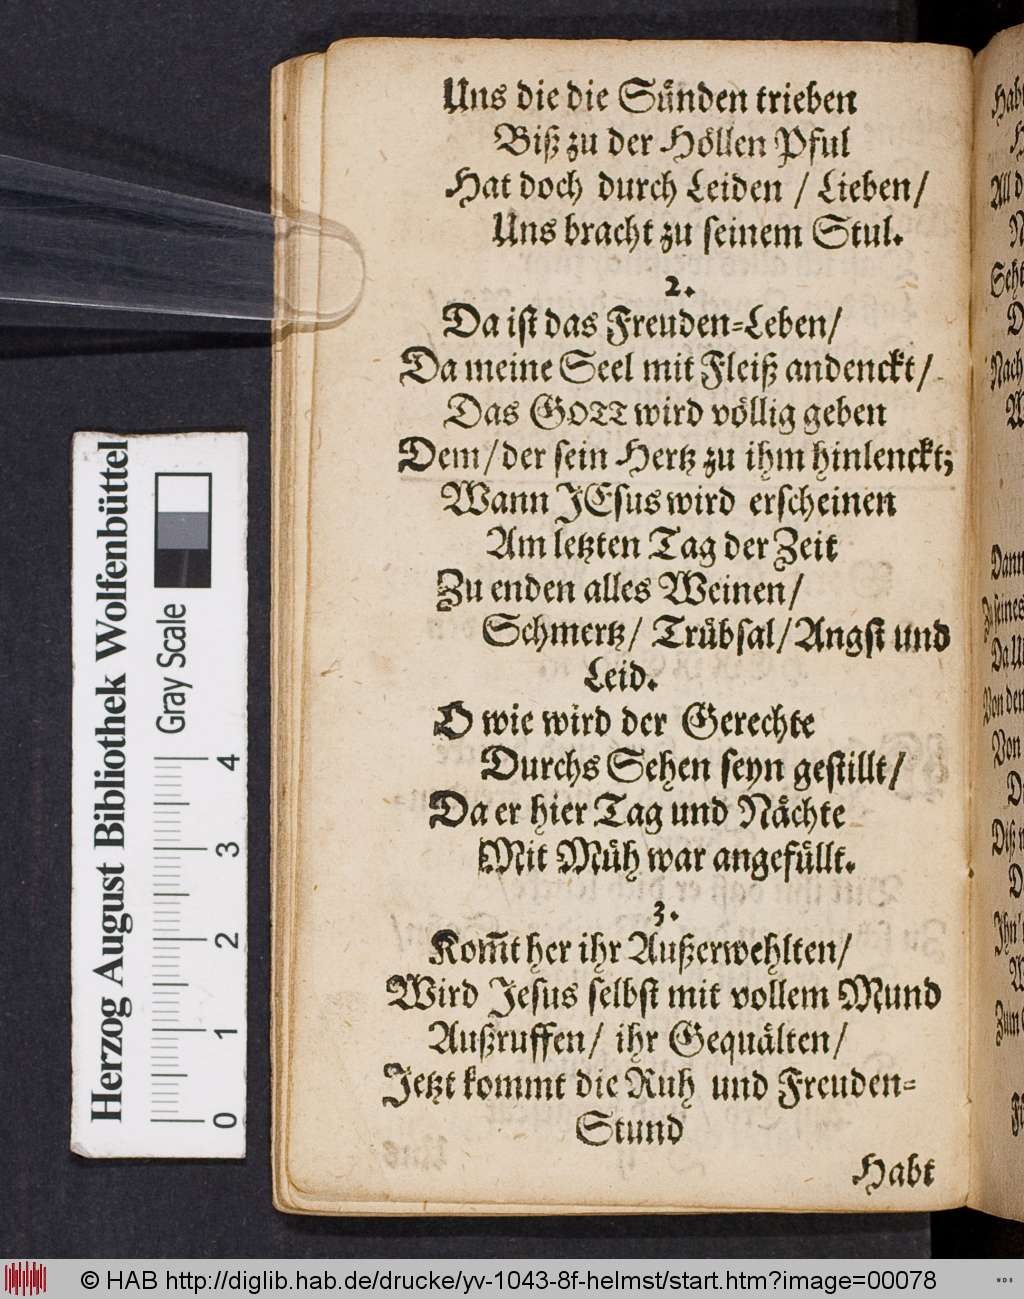 Uns die die Sünden trieben
Biß zu der Höllen Pful
Hat doch durch Leiden / Lieben /
Uns bracht zu seinem Stul.
2.
Da ist das Freuden-Leben /
Da meine Seel mit Fleiß andenckt /
Das GOTT wird völlig geben
Dem / der sein Hertz zu ihm hinlenckt;
Wann JEsus wird erscheinen
Am letzten Tag der Zeit
Zu enden alles Weinen /
Schmertz / Trübsal / Angst und
Leid.
O wie wird der Gerechte
Durchs Sehen seyn gestillt /
Da er hier Tag und Nächte
Mit Müh war angefüllt.
3.
Kom̅t her ihr Außerwehlten /
Wird Jesus selbst mit vollem Mund
Außruffen / ihr Gequälten /
Jetzt kommt die Ruh und Freuden-
Stund
Habt
Herzog August Bibliothek Wolfenbüttel
Gray Scale
0 1 2 3 4
© HAB http://diglib.hab.de/drucke/yv-1043-8f-helmst/start.htm?image=00078